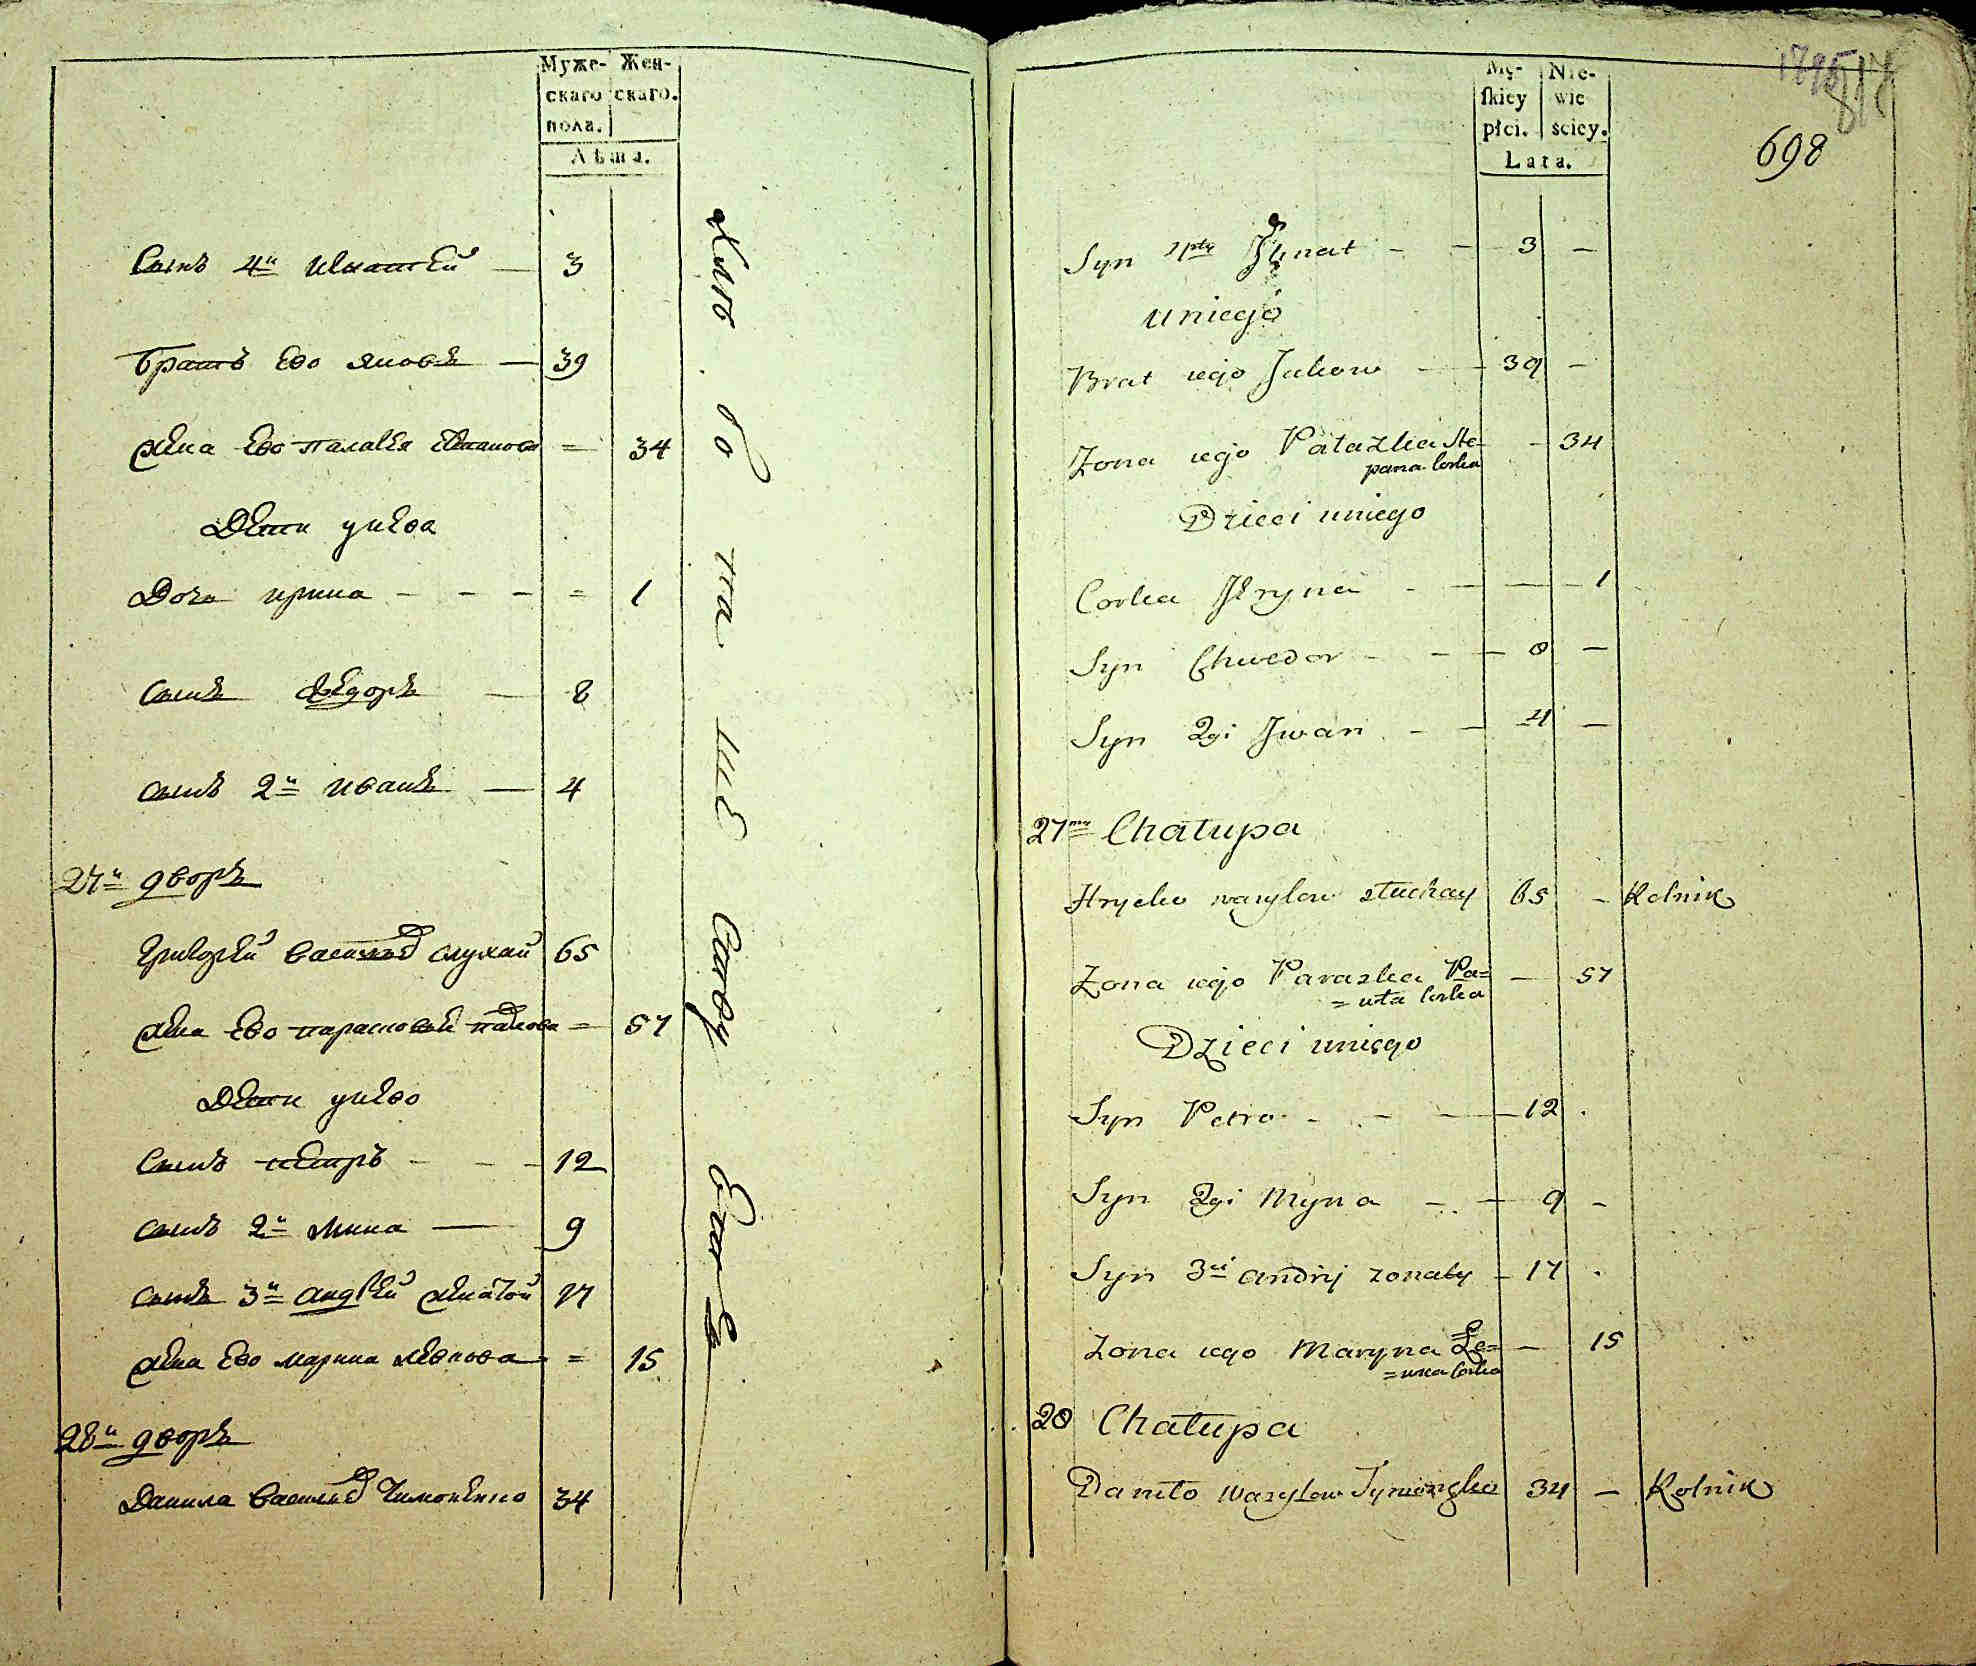 Муже- Жен-
скаго скаго.
пола.
Лѣта.
Сынъ 4й Игнатей — 3
Братъ Ево яковъ — 39
жена Ево палагея степанова = 34
Дети унева
Доче ирина - - - = 1
сынъ Федоръ — 8
сынъ 2й иванъ — 4
27й дворъ
Григорей василевъ слухай 65
жена Ево парасковея павлова = 57
Дети унево
Сынъ петръ - - - 12
сынъ 2й мина — 9
сынъ 3й андрей женатой 17
жена Ево марина левкова = 15
28й дворъ
Данила василевъ Тимоненко 34
Mę- Nie-
ſkiey wie
płci. ściey.
Lata.
698
Syn 4ty Ihnat - - 3 —
u niego
Brat iego Jakow - - 39 -
Zona iego Pałazka Ste-
pana Corka - 34
Dzieci uniego
Corka Jryna - — — 1
Syn Chwedor - - — 8 —
Syn 2gi Jwan - - 4 —
27my Chałupa
Hryćko wasylow słuchay 65 - Rolnik
Zona iego Paraska Pa=
=wła Corka — 57
Dzieci uniego
Syn Petro - - — 12 .
Syn 2gi Myna - - 9 -
Syn 3ci andrij zonaty - 17 .
Zona iego Maryna Le=
=wka Corka — 15
28 Chałupa
Daniło wasylow Tymonęko 34 — Rolnik